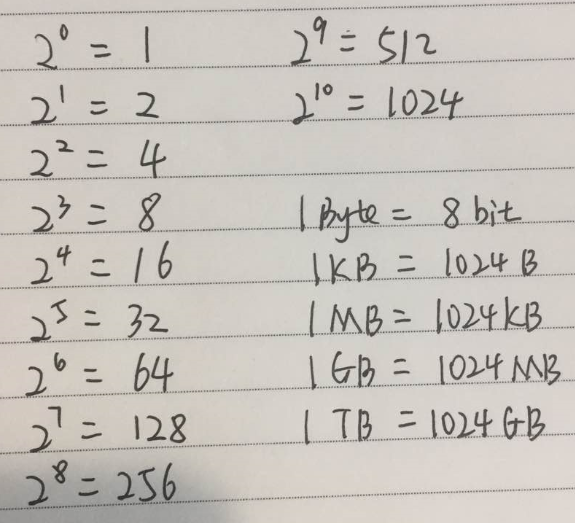 2⁰ = 1
2¹ = 2
2² = 4
2³ = 8
2⁴ = 16
2⁵ = 32
2⁶ = 64
2⁷ = 128
2⁸ = 256
2⁹ = 512
2¹⁰ = 1024
1 Byte = 8 bit
1 KB = 1024 B
1 MB = 1024 KB
1 GB = 1024 MB
1 TB = 1024 GB